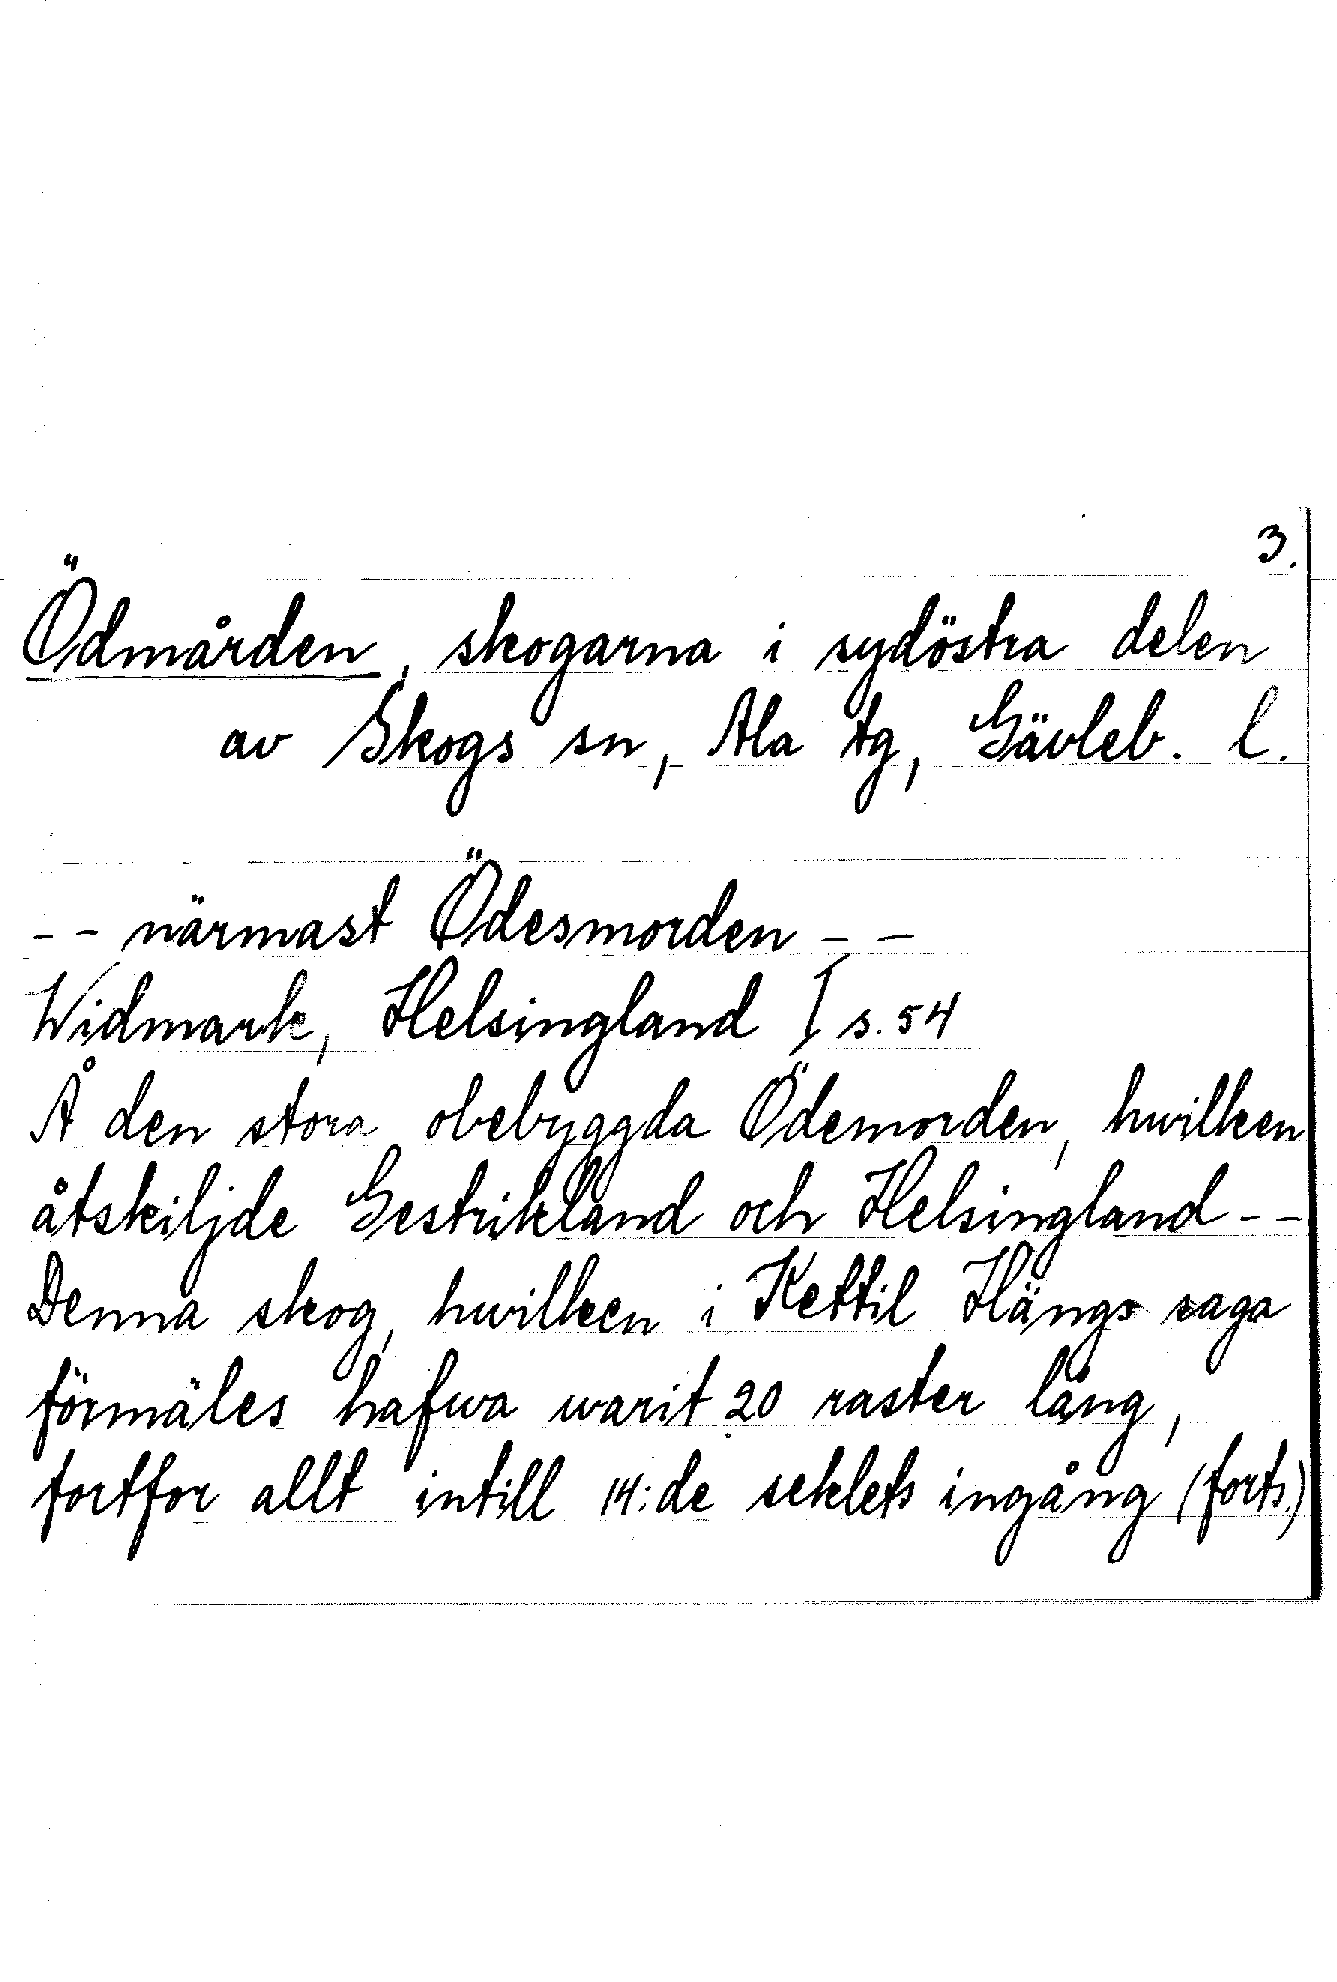 3.
Ödmården, skogarna i sydöstra delen
av Skogs sn, Ala tg, Gävleb. l.
-- närmast Ödesmorden --
Widmark, Helsingland I s. 54
Å den stora obebyggda Ödemorden, hwilken
åtskiljde Gestrikland och Helsingland --
Denna skog, hwilken i Kettil Hängs saga
förmäles hafwa warit 20 raster lång,
fortfor allt intill 14:de seklets ingång (forts.)